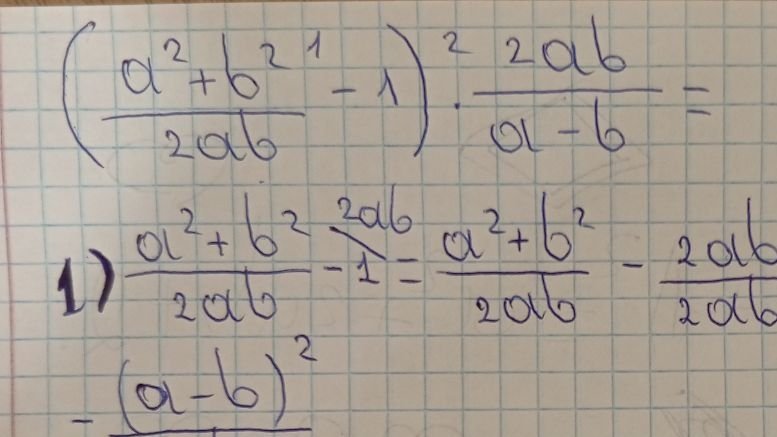 (a²+b² / 2ab -¹ 1) ·² 2ab / a-b =
1) a²+b² / 2ab - 1\2ab = a²+b² / 2ab - 2ab / 2ab
- (a-b)²